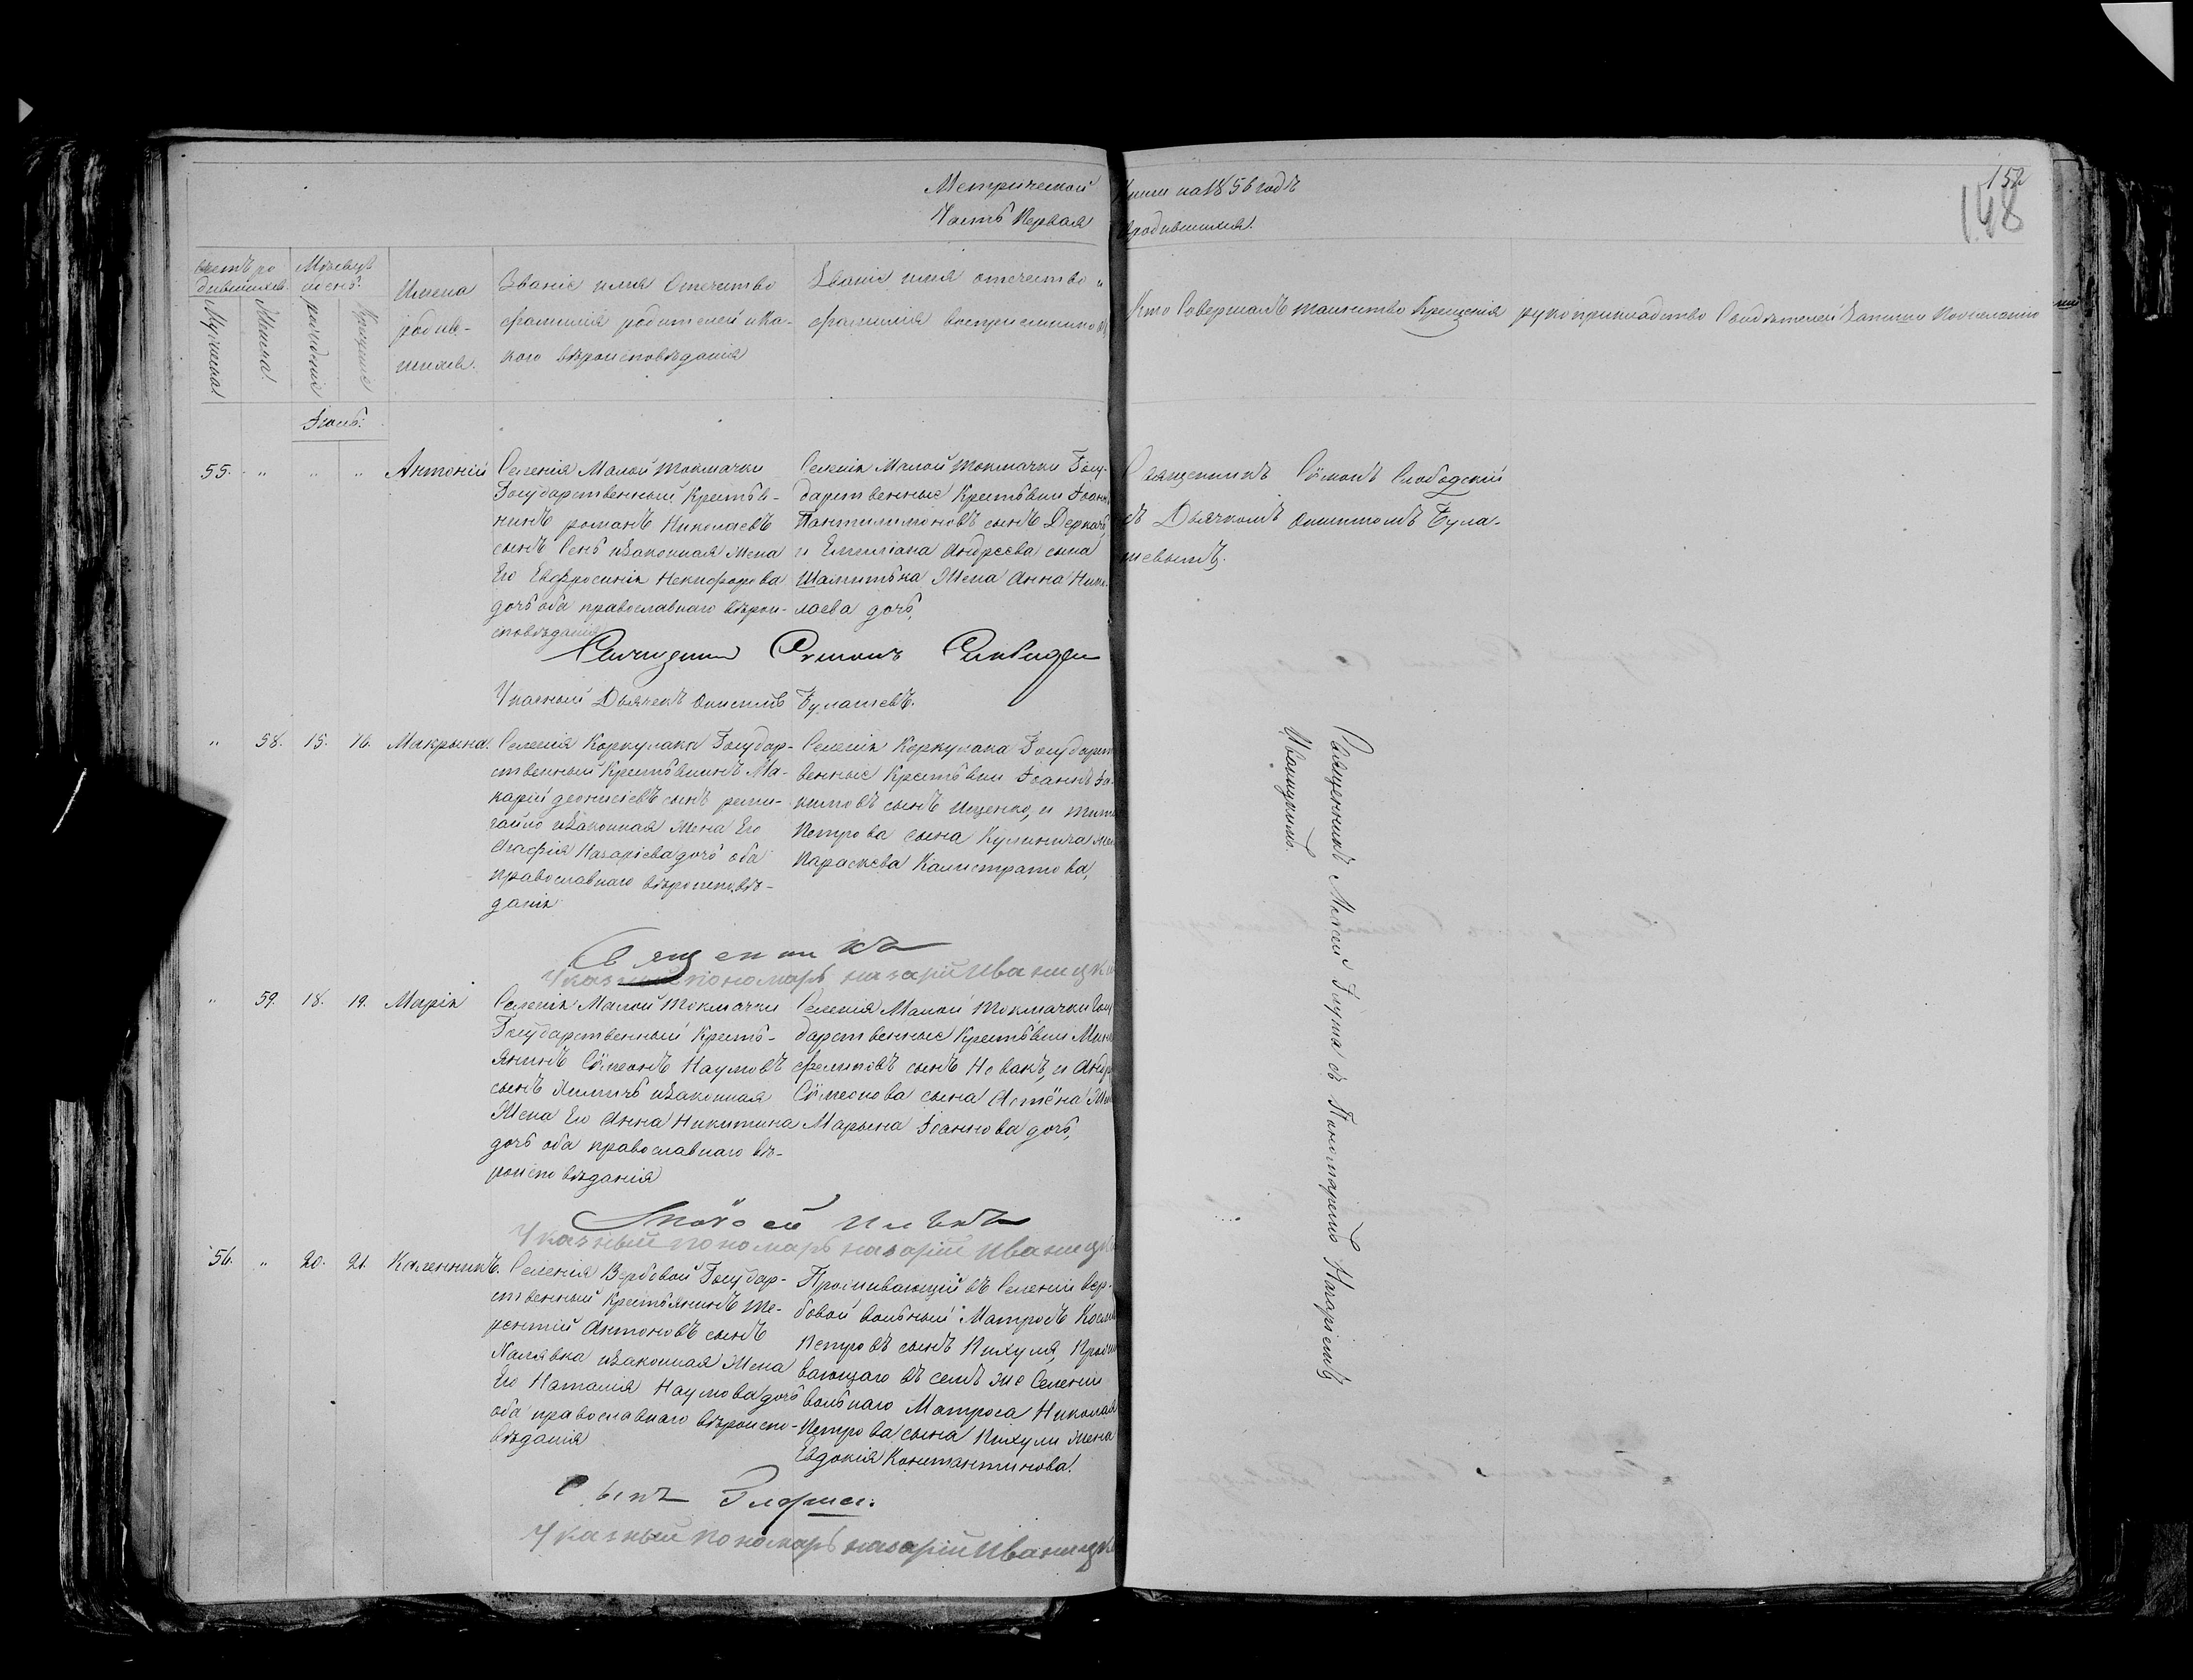 Метрической книги на 1856 годъ
Часть Первая о родившихся.
152
148
Счетъ ро
дившихся.
Мѣсяцъ
и день.
Мужеска.
Женска.
рожденія
Крещенія
Имена
родив-
шихся.
Званіе имя Отечество
фамилія родителей и ка-
кого вѣроисповѣданія
Званіе, имя отечество и
фамилія воспріемниковъ
Кто Совершалъ таинство Крещенія
рукоприкладство Свидѣтелей Записи по желанію
Іюль.
55. " " " Антоній
Селенія Малой Токмачки
Государственный Крестья-
нинъ романъ Николаевъ
сынъ Сень и Законная Жена
Его Евфросинія Никифорова
дочь оба православнаго вѣрои-
сповѣданія
Селенія Малой Токмачки Госу-
дарственные Крестьяни Іоаннъ
Пантилимоновъ сынъ Деркачъ,
и Емиліана Андреева сына
Шамитька Жена Анна Нико-
лаева дочь,
Священникъ Сѵмонъ Слободскій
съ Дьячкомъ Булa-
шевымъ.
Священникъ Симонъ
Указный Дьячекъ Булашевъ.
" 58. 15. 16. Макрына.
Селенія Коркулака Государ-
ственный Крестьянинъ Ма-
карій деонисіевъ сынъ
и Законная Жена Его
Агафія Назаріева дочь оба
православнаго вѣроисповѣ-
данія
Селенія Коркулака Государст
венные Крестьяни Іоаннъ Іа-
кимовъ сынъ Ищенко, и
Петрова сына Кулинича
Параскева Калистратова,
Священникъ
Указный пономарь назарій Иваницк
" 59. 18. 19. Марія
Селенія Малой Токмачки
Государственный Кресть-
янинъ Сѵмеонъ Наумовъ
сынъ и Законная
Жена Его Анна Никитина
дочь оба православнаго вѣ-
роисповѣданія
Селенія Малой Токмачки Госу
дарственные Крестьяни
сынъ Новакъ, и Андр
Сѵмеонова сына
Марьина Іоаннова дочь,
Указный пономарь назарій Иваницк
56. " 20. 21. Каленникъ.
Селенія Вербовой Государ-
ственный Крестьянинъ Те-
рентій Антоновъ сынъ
Халявка и Законная Жена
Его Наталія Наумова дочь
оба православнаго вѣроиспо-
вѣданія
Проживающій въ Селеніи Вер-
бовой вольный Матросъ Косьма
Петровъ сынъ Пихуля, Прожи
вающаго въ семъ же Селеніи
вольнаго Матроса Николая
Петрова сына Пихули Жена
Евдокія Константинова.
Указный пономарь назарій Иваницк
Священникъ Алексей Глута съ Пономаремъ Назаріемъ
Иваницкимъ